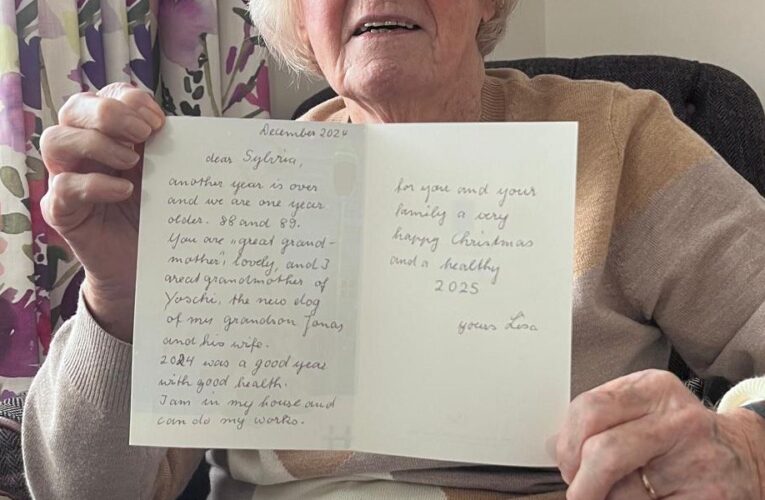 December 2024
dear Sylvia,
another year is over
and we are one year
older. 88 and 89.
You are „great grand-
mother", lovely, and I
great grandmother of
Yoschi, the new dog
of my grandson Jonas
and his wife.
2024 was a good year
with good health.
I am in my house and
can do my works.
for you and your
family a very
happy Christmas
and a healthy
2025
yours Lisa